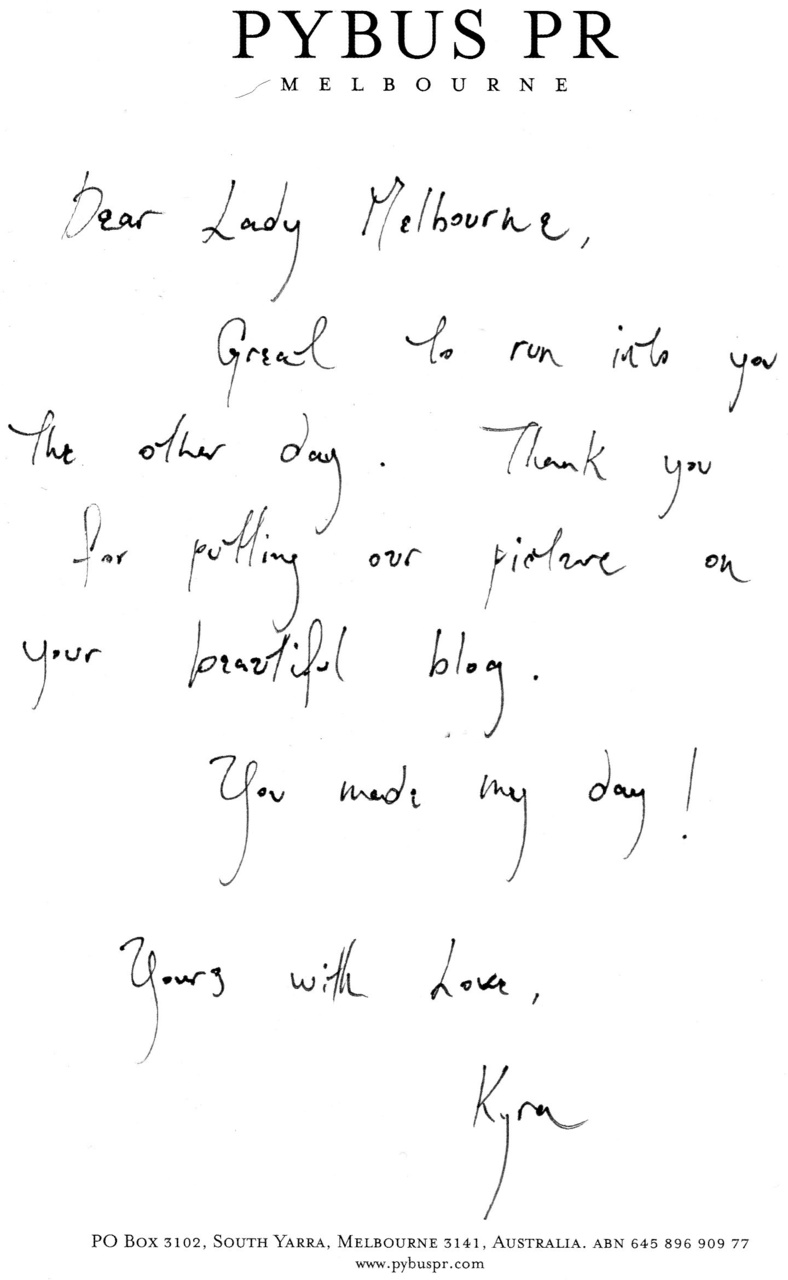 PYBUS PR
MELBOURNE
Dear Lady Melbourne,
Great to run into you
the other day. Thank you
for putting our picture on
your beautiful blog.
You made my day!
Yours with Love,
Kyra
PO BOX 3102, SOUTH YARRA, MELBOURNE 3141, AUSTRALIA. ABN 645 896 909 77
www.pybuspr.com